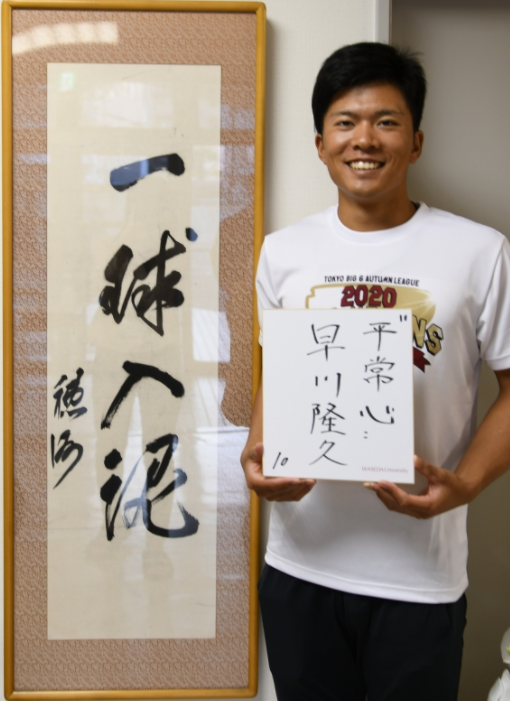 一球入魂
穂洲
TOKYO BIG 6 AUTUMN LEAGUE
2020
NS
"平常心"
早川隆久
10
WASEDA University